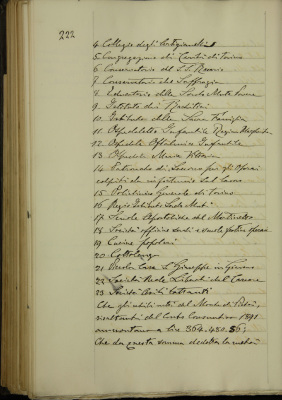 222
4 Collegio degli Artigianelli
5 Congregazione di Carità di Torino
6 Conservatorio del S.S. Rosario
7 Conservatorio del Suffragio
8 Educatorio della
9 Istituto dei Rachitici
10 Istituto della Sacra Famiglia
11 Ospedaletto Infantile Regina Margherita
12 Ospedale Oftalmico Infantile
13 Ospedale Maria Vittoria
14 Patronato di Soccorso per gli Operai
colpiti da infortunio sul lavoro
15 Policlinico Generale di Torino
16 Regio Istituto Sordo Muti
17 Scuola Apostolica del
18 Società officina serale e scuola
19 Cucine popolari
20 Cottolengo
21 Piccola Casa S. Giuseppe in
22 Società Reale
23 Società Asili Lattanti
Che gli utili netti del Monte di Pietà,
risultanti dal Conto Consuntivo 1891
ammontano a lire 364.450.56;
Che da questa somma dedotta la metà